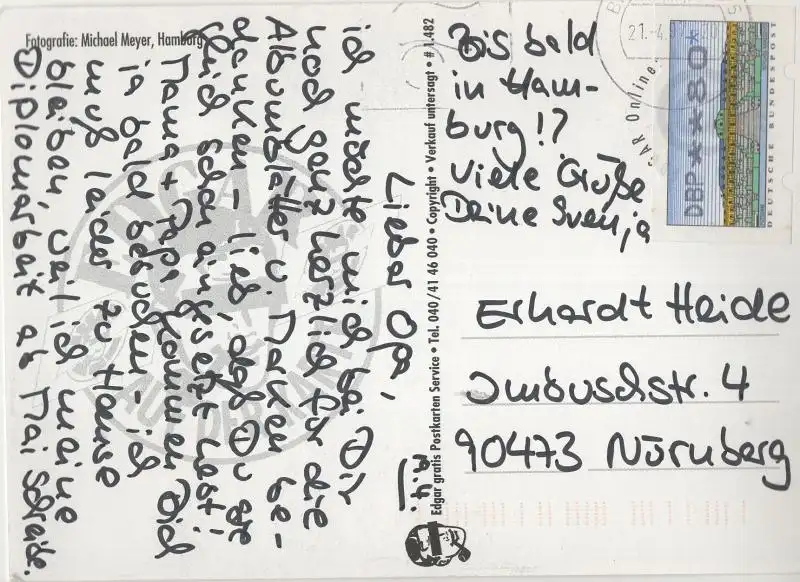 Fotografie: Michael Meyer, Hamburg
19.4.
Lieber Opa,
ich möchte mich bei Dir
noch ganz herzlich für die
Albumblätter u. Marken be-
danken – lieb, daß Du sie
gleich schon eingesetzt hast!
Mama + Papa kommen Dich
ja bald besuchen – ich
muß leider zu Hause
bleiben, weil ich meine
Diplomarbeit ab Mai schreibe.
Bis bald
in Ham-
burg!?
Viele Grüße
Deine Svenja
Edgar gratis Postkarten Service • Tel. 040/41 46 040 • Copyright • Verkauf untersagt • # 1.482
EDGAR
Online:
21.-4.
DBP**80*
DEUTSCHE BUNDESPOST
Erhardt Heide
Imbuschstr. 4
90473 Nürnberg